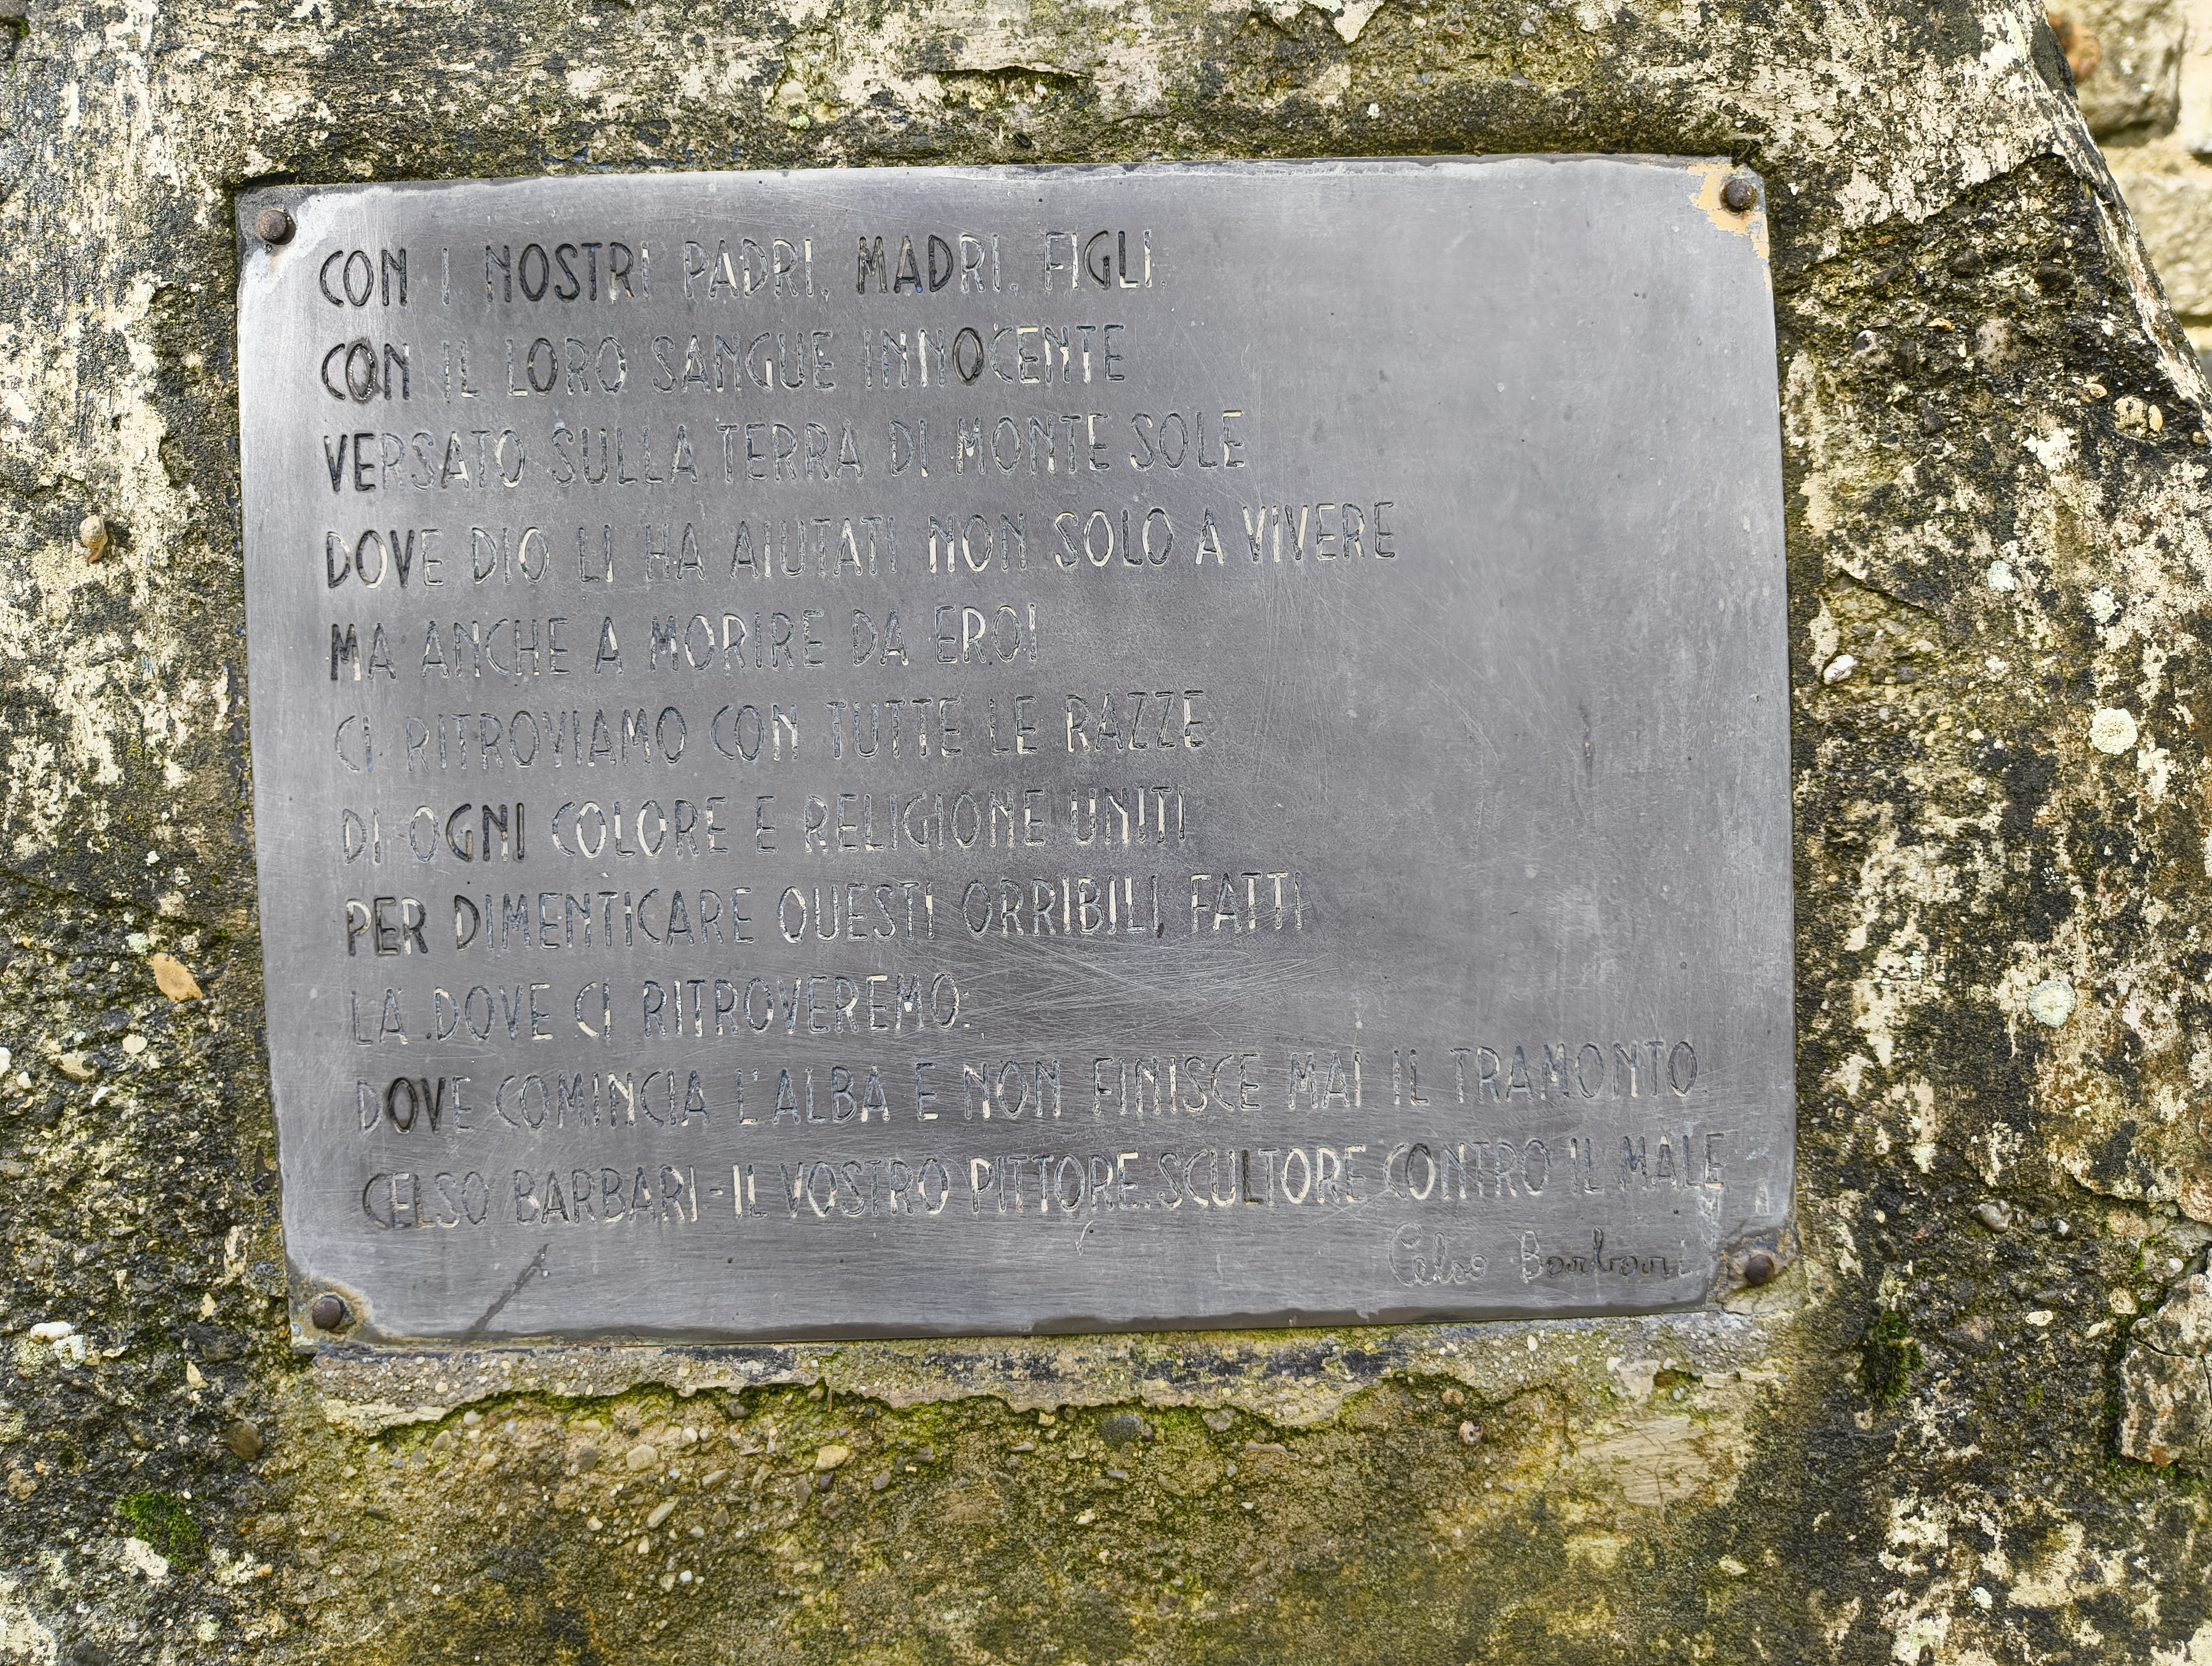 CON I NOSTRI PADRI, MADRI, FIGLI,
CON IL LORO SANGUE INNOCENTE
VERSATO SULLA TERRA DI MONTE SOLE
DOVE DIO LI HA AIUTATI NON SOLO A VIVERE
MA ANCHE A MORIRE DA EROI
CI RITROVIAMO CON TUTTE LE RAZZE
DI OGNI COLORE E RELIGIONE UNITI
PER DIMENTICARE QUESTI ORRIBILI FATTI
LA DOVE CI RITROVEREMO:
DOVE COMINCIA L'ALBA E NON FINISCE MAI IL TRAMONTO.
CELSO BARBARI-IL VOSTRO PITTORE.SCULTORE CONTRO IL MALE
Celso Barbari